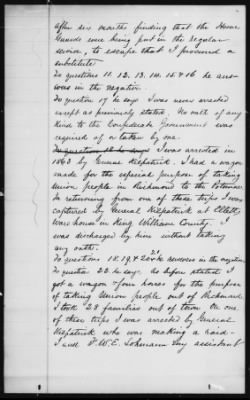 after six months finding that the Home
Guards were being put in the regular
service, to escape that I procured a
substitute.
To questions 11. 12. 13. 14. 15 & 16 he ans-
wers in the negative.
To question 17 he says I was never arrested
except as previously stated, No oath of any
kind to the Confederate Government was
required of or taken by me.
To question 18 he says I was arrested in
1863 by General Kilpatrick. I had a wagon
made for the especial purpose of taking
Union people in Richmond to the Potomac.
In returning from one of those trips I was
captured by General Kilpatrick at Aletts
Ware house in King William County. I
was discharged by him without taking
any oath.
To questions 18. 19. & 20th he answers in the negative
To question 22 he says As before stated I
got a wagon & four horses for the purpose
of taking Union people out of Richmond
I took 28 families out of town. On one
of these trips I was arrested by General
Kilpatrick who was making a raid-
I and F. W. E. Lohmann my assistant